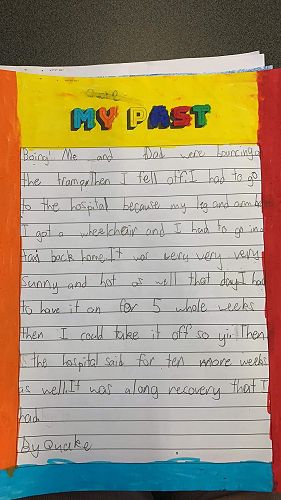 MY PAST
Boing! Me and Dad were bouncing o
the tramp. Then I fell off. I had to go
to the hospital because my leg and arm
I got a wheelchair and I had to go in a
taxi back home. It wor very very very
sunny and hot as well that day. I had
to have it on for 5 whole weeks
then I could take it off so yi. Then
the hospital said for ten more weeks
as well. It was along recovery that I
had.
By Quake